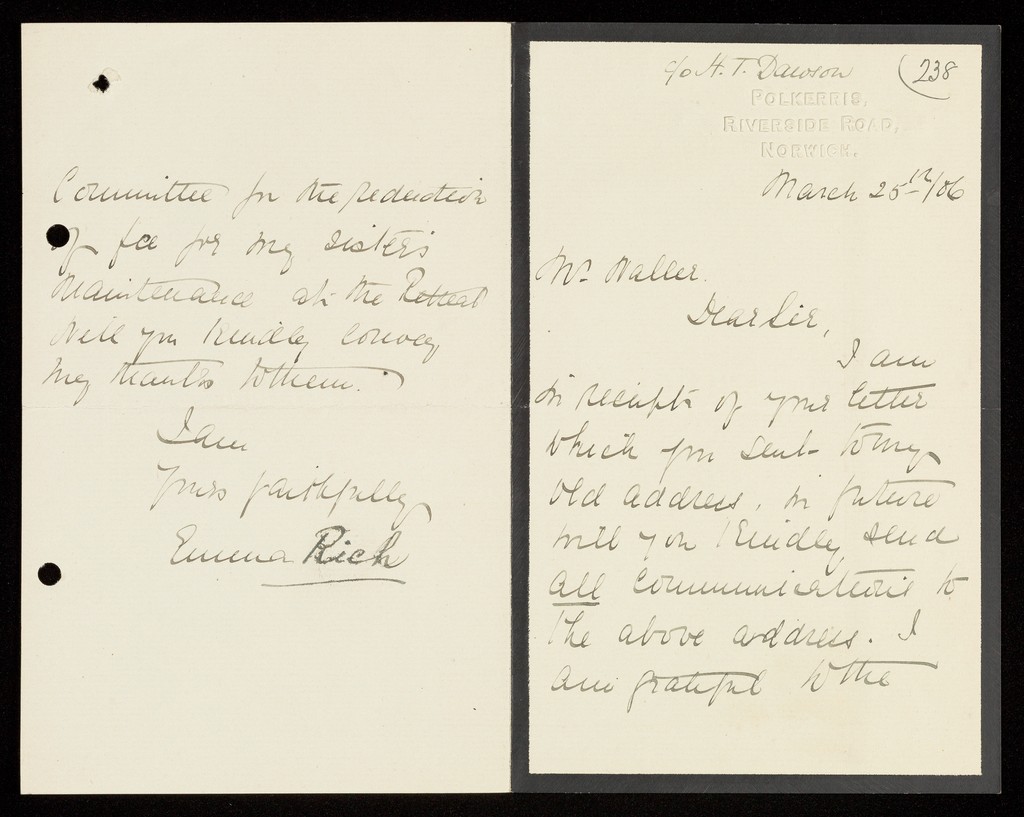 c/o H. T. Dawson
(238
POLKERRIS,
RIVERSIDE ROAD,
NORWICH.
March 25th/06
Mr Waller.
Dear Sir,
I am
in receipt of your letter
which you sent to my
old address, in future
will you kindly send
all communications to
the above address. I
am grateful to the
Committee for the reduction
of fee for my sister's
maintenance at the Retreat
Will you kindly convey
my thanks to them.
I am
Yours faithfully
Emma Rich